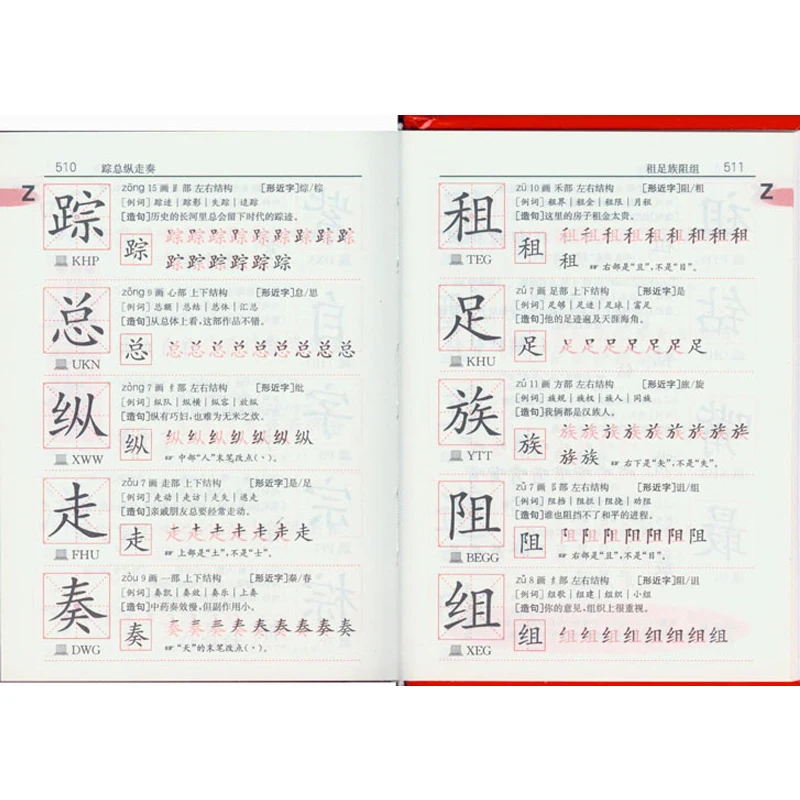 510 踪总纵走奏
Z
踪 zōng 15画 𧾷部 左右结构 [形近字]综/棕
[例词]踪迹|踪影|失踪|追踪
[造句]历史的长河里总会留下时代的踪迹。
踪 踪踪踪踪踪踪踪踪踪
踪踪踪踪踪踪
KHP
总 zǒng 9画 心部 上下结构 [形近字]息/思
[例词]总额|总结|总体|汇总
[造句]从总体上看,这部作品不错。
总 总总总总总总总总总
UKN
纵 zòng 7画 纟部 左右结构 [形近字]纰
[例词]纵队|纵横|纵容|放纵
[造句]纵有巧妇,也难为无米之炊。
纵 纵纵纵纵纵纵纵
XWW ☞ 中部“人”末笔改点(丶)。
走 zǒu 7画 走部 上下结构 [形近字]是/足
[例词]走动|走访|走失|逃走
[造句]亲戚朋友总要经常走动。
走 走走走走走走走
FHU ☞ 上部是“土”,不是“士”。
奏 zòu 9画 一部 上下结构 [形近字]秦/春
[例词]奏凯|奏效|奏乐|上奏
[造句]中药奏效慢,但副作用小。
奏 奏奏奏奏奏奏奏奏奏
DWG ☞ “天”的末笔改点(丶)。
租足族阻组 511
Z
租 zū 10画 禾部 左右结构 [形近字]阻/粗
[例词]租界|租金|租限|月租
[造句]这里的房子租金太贵。
租 租租租租租租租租租
TEG 租 ☞ 右部是“且”,不是“目”。
足 zú 7画 足部 上下结构 [形近字]是
[例词]足够|足迹|足球|富足
[造句]他的足迹遍及天涯海角。
足 足足足足足足足
KHU
族 zú 11画 方部 左右结构 [形近字]旅/旋
[例词]族规|族权|族人|同族
[造句]我俩都是汉族人。
族 族族族族族族族族族
族族 ☞ 右下是“矢”,不是“失”。
YTT
阻 zǔ 7画 阝部 左右结构 [形近字]诅/组
[例词]阻挡|阻抗|阻挠|劝阻
[造句]谁也阻挡不了和平的进程。
阻 阻阻阻阻阻阻阻
BEGG ☞ 右部是“且”,不是“目”。
组 zǔ 8画 纟部 左右结构 [形近字]阻/诅
[例词]组歌|组建|组织|小组
[造句]你的意见,组织上很重视。
组 组组组组组组组组
XEG